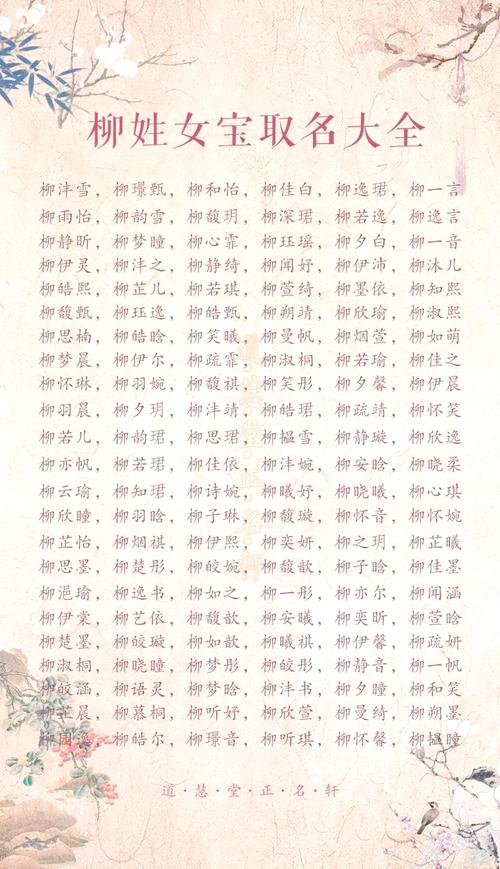 柳姓女宝取名大全
柳沣雪，柳璟甄，柳和怡，柳佳白，柳逸珺，柳一言
柳雨怡，柳韵雪，柳馥玥，柳深珺，柳若逸，柳逸言
柳静昕，柳梦曈，柳心霏，柳珏瑶，柳夕白，柳一音
柳伊灵，柳沣之，柳静绮，柳闻妤，柳伊沛，柳沐儿
柳皓熙，柳芷儿，柳若琪，柳萱绮，柳墨依，柳知熙
柳馥甄，柳珏逸，柳皓甄，柳朔靖，柳欣瑜，柳淑熙
柳思楠，柳皓晗，柳笑曦，柳曼帆，柳烟萱，柳如萌
柳梦晨，柳伊尔，柳疏霏，柳淑桐，柳若瑜，柳佳之
柳怀琳，柳羽婉，柳馥祺，柳笑彤，柳夕馨，柳伊晨
柳羽晨，柳夕玥，柳沣靖，柳皓珺，柳疏靖，柳怀笑
柳若儿，柳韵珺，柳思珺，柳韫雪，柳静璇，柳欣逸
柳亦帆，柳若珺，柳佳依，柳沣婉，柳安晗，柳晓柔
柳云瑜，柳知珺，柳诗婉，柳曦妤，柳晓曦，柳心琪
柳欣曈，柳羽晗，柳子琳，柳馥璇，柳怀音，柳怀婉
柳芷怡，柳烟祺，柳伊熙，柳奕妍，柳之玥，柳芷曦
柳思墨，柳楚彤，柳皎婉，柳馥歆，柳子晗，柳佳墨
柳浥瑜，柳逸书，柳如之，柳一彤，柳亦尔，柳闻涵
柳伊棠，柳艺依，柳馥歆，柳安曦，柳奕昕，柳萱晗
柳楚墨，柳皎璇，柳如歆，柳曦祺，柳伊馨，柳疏妍
柳淑桐，柳晓曈，柳梦彤，柳皎彤，柳静音，柳一帆
柳皎涵，柳语灵，柳梦晗，柳沣书，柳夕曈，柳和笑
柳芷晨，柳慕桐，柳听妤，柳欣萱，柳曼绮，柳朔墨
柳，柳皓尔，柳璟音，柳听琪，柳怀馨，柳韫曈
道·慧·堂·正·名·轩